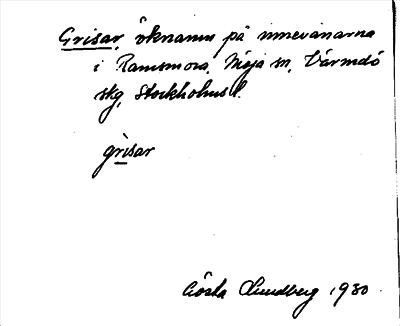 Grisar, öknamn på innevånarna
i Ramsmora, Möja sn, Värmdö
skg, Stockholms l.
grisar
Gösta Lundberg 1930